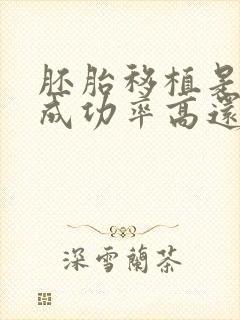 胚胎移植是
成功率高還
深雪蘭茶